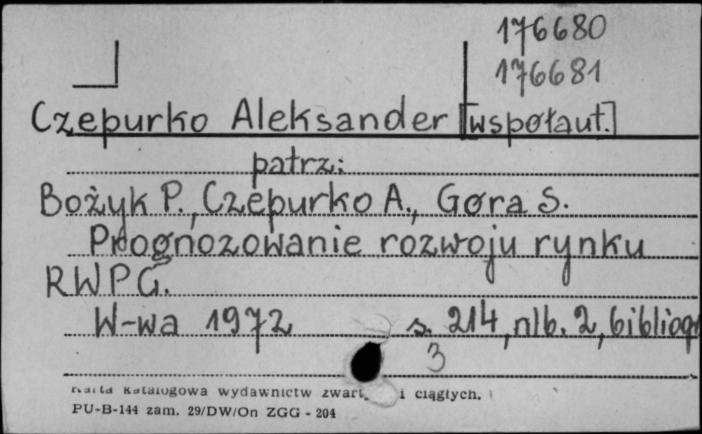 176680
176681
Czepurko Aleksander [współaut.]
patrz:
Bożyk P., Czepurko A., Góra S.
Prognozowanie rozwoju rynku
RWPG.
W-wa 1972 s. 214, nlb. 2, bibliogr
3
Karta katalogowa wydawnictw zwart i ciągłych.
PU-B-144 zam. 29/DW/On ZGG - 204